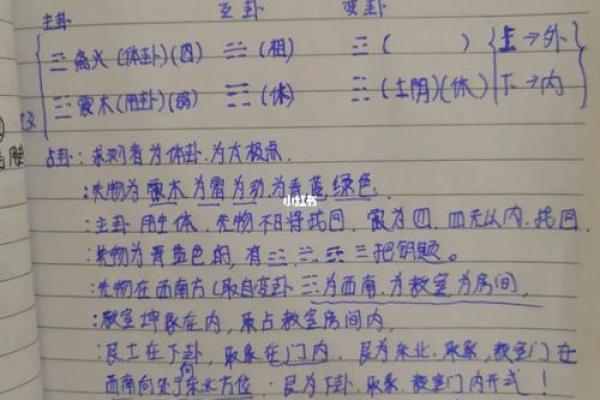 主卦 互卦 变卦
☲ 离火 (体卦)(四) (相) ( ) 上→外
☳ 震木(用卦)(弱) (休) (土阴)(休) 下→内
占卦:求测者为体卦.为太极点.
:失物为震木为雷为动为青蓝绿色.
:主卦用生体.失物不日将找回,震为四.四天以内.找回.
:失物为青蓝色的,有 三把钥匙。
:失物在西南方(取自变卦 ☷为西南.为教室为房间,
:教室坤象在内,取占教室房间内,
:艮土在下卦,取象在门内.艮为东北.取象,教室门在
西南向处于东北方位.艮为下卦.取象.教室门内开式!
小红书